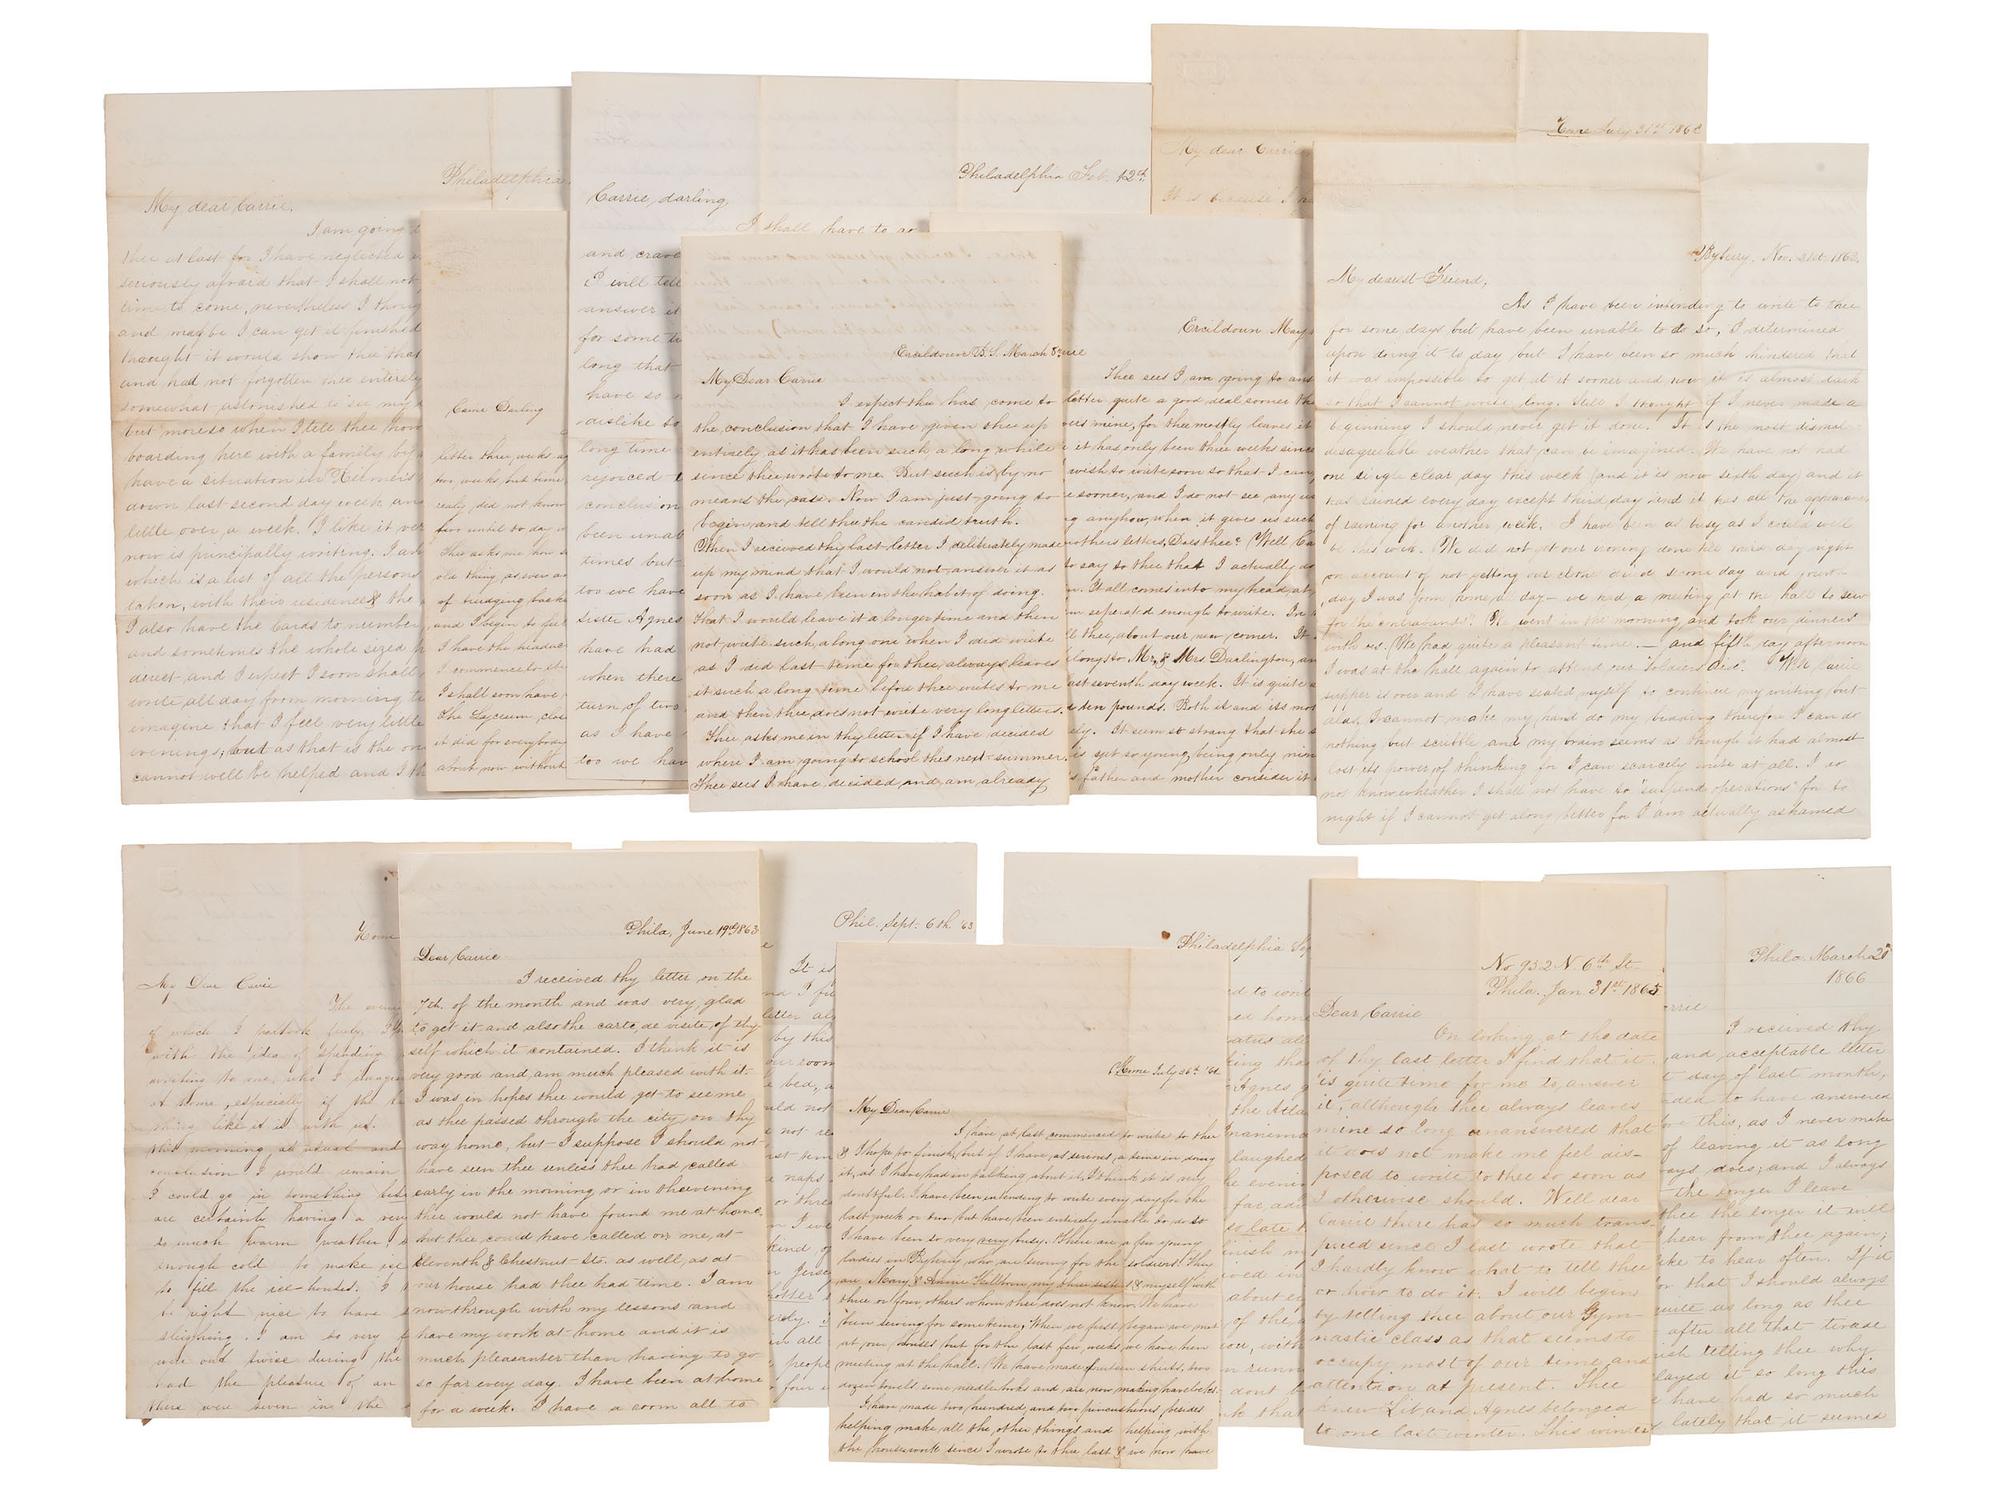 Philadelphia
My dear Carrie,
I am going t
thee at last for I have neglected
seriously afraid that I shall not
time to come, nevertheless I thoug
and maybe I can get it finished
thought it would show thee that
and had not forgotten thee entirely
somewhat astonished to see my
but more so when I tell thee how
boarding here with a family by
have a situation in
down last second day week and
little over a week. I like it ver
now is principally writing. I am
which is a list of all the persons
taken, with their residences & the
I also have the Cards to number
and sometimes the whole sized
direct, and I expect I soon shall
write all day from morning t
imagine that I feel very little
evenings; but as that is the on
cannot well be helped and I th
Carrie Darling
letter three weeks ag
two weeks, but time
really did not know
far until to day
Thee asks me how
old thing, as ever an
of trudging back
and I begin to feel
I have the headac
I commence to
I shall soon have
The Lyceum clos
it did for everybody
about now without
Philadelphia Feb. 12th.
Carrie, darling,
I shall have to as
and crave
I will tell
answer it
for some t
long that
have so
dislike to
long time
rejoiced t
conclusion
been unab
times but
too we have
sister Agnes
have had
when there
turn of two
as I have
too we hav
Ercildoun B.S. March 8th
My Dear Carrie
I expect thee has come to
the conclusion that I have given thee up
entirely as it has been such a long while
since thee wrote to me. But such is by no
means the case. Now I am just going to
begin and tell thee the candid truth.
When I received thy last letter I deliberately made
up my mind that I would not answer it as
soon as I have been in the habit of doing.
That I would leave it a longer time and then
not write such a long one when I did write
as I did last time for thee always leaves
it such a long time before thee writes to me
and then thee does not write very long letters.
Thee asks me in thy letter if I have decided
where I am going to school this next summer,
Thee sees I have decided, and am already
Ercildoun May
Thee sees I am going to ans
letter quite a good deal sooner th
vers mine, for thee mostly leaves it
e it has only been three weeks since
wish to write soon so that I can
e sooner, and I do not see any us
g anyhow, when it gives us such
nothers letters, Does thee? Well Ca
to say to thee that I actually do
n. It all comes into my head at
m seperated enough to write. I
ll thee, about our new comer. It
elongs to Mr. & Mrs. Darlington, an
ast seventh day week. It is quite
e ten pounds. Both it and its mo
ely. It seem so strang that she s
is yet so young, being only nin
s father and mother consider it
Home July 31st 186
My dear Carrie
It is because I
Byberry, Nov. 21st 1862.
My dearest Friend,
As I have been intending to write to thee
for some days but have been unable to do so, I determined
upon doing it to day but I have been so much hindered that
it was impossible to get at it sooner and now it is almost dark
so that I cannot write long. Still I thought if I never made a
beginning I should never get it done. It is the most dismal
disagreeable weather that can be imagined. We have not had
one single clear day this week (and it is now sixth day) and it
has rained every day except third day and it has all the appearance
of raining for another week. I have been as busy as I could well
be this week. We did not get our ironing done till third day night
on account of not getting our clothes dried second day and fourth
day I was from home all day — we had a meeting at the hall to sew
for the contrabands. We went in the morning and took our dinners
with us. We had quite a pleasant time. — and fifth day afternoon
I was at the hall again to attend our Soldiers Aid. Well Carrie
supper is over and I have seated myself to continue my writing but
alas, I cannot make my hand do my bidding therefore I can do
nothing but scribble and my brain seems as though it had almost
lost its power of thinking for I can scarcely write at all. I do
not know wheather I shall not have to "suspend operations" for to
night if I cannot get along better for I am actually ashamed
Home
My Dear Carrie
The even
of which I partook freely,
with the idea of spending
writing to one, who I imagin
at home, especially if the
thing like it is with us.
this morning, as usual and
conclusion I would remain
I could go in something
are certainly having a very
so much warm weather
enough cold to make ice
to fill the ice-houses. I
be right nice to have
sleighing. I am so very
was out twice during the
had the pleasure of an
there were seven in the
Phila, June 19th 1863
Dear Carrie
I received thy letter on the
7th. of the month and was very glad
to get it and also the carte de visite of thy-
self which it contained. I think it is
very good and am much pleased with it.
I was in hopes thee would get to see me
as thee passed through the city, on thy
way home, but I suppose I should not
have seen thee unless thee had called
early in the morning or in the evening
thee would not have found me at home,
but thee could have called on me, at
Eleventh & Chestnut Sts. as well, as at
our house had thee had time. I am
now through with my lessons and
have my work at home and it is
much pleasanter than having to go
so far every day. I have been at home
for a week. I have a room all to
Phil. Sept. 6th. '63
It is
nd I fi
letter al
by this
our room
e bed, a
uld not
e not re
ust ten
e naps
or three
n I we
kind of
n Jerse
hotter
erly. I
in all
, people
four
Home July 26th '61
My Dear Carrie
I have at last commenced to write to thee
& I hope to finish, but if I have as serious a time in doing
it, as I have had in talking about it, I think it is very
doubtful. I have been intending to write every day for the
last week or two but have been entirely unable to do so
I have been so very very busy. There are a few young
ladies in Byberry who are sewing for the soldiers. They
are Mary & Annie Hallowell, my three sisters & myself with
three or four, others whom thee does not know. We have
been sewing for sometime; When we first began we met
at our houses but for the last few weeks we have been
meeting at the hall. We have made fourteen shirts, two
dozen towels some needle books and are now making havelocks.
I have made two hundred and two pincushions, besides
helping make all the, other things and helping with
the housework since I wrote to thee last & we now have
Philadelphia Sep
ed to
ed home
atus all
ing tha
Agnes g
the Atla
laughed
he eveni
far, adv
so late t
inish m
ved in
about e
of the
ou, with
n runn
dont b
k that
No 932 N. 6th St.
Phila. Jan 31st 1865
Dear Carrie
On looking at the date
of thy last letter I find that it
is quite time for me to answer
it, although thee always leaves
mine so long unanswered that
it does not make me feel dis-
posed to write to thee so soon as
I otherwise should. Well dear
Carrie there has so much trans-
pired since I last wrote that
I hardly know what to tell thee
or how to do it. I will begin
by telling thee about our Gym-
nastic class as that seems to
occupy most of our time and
attention at present. Thee
knew Lib and Agnes belonged
to one last winter. This winter
Phila. March 28
1866
rrie
I received thy
and acceptable letter
t day of last month,
ded to have answered
ore this, as I never make
of leaving it as long
ays does; and I always
the longer I leave
thee the longer it will
hear from thee again;
ike to hear often. If it
or that I should always
quite as long as thee
after all that tirade
ish telling thee why
layed it so long this
have had so much
lately that it seemed